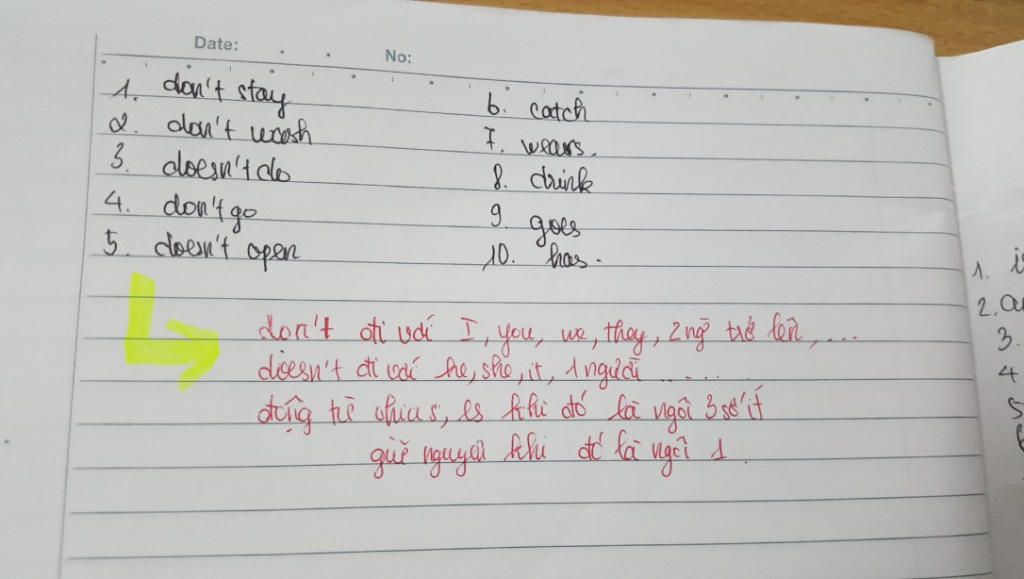 Date: No:
1. don't stay
2. don't wash
3. doesn't do
4. don't go
5. doesn't open
6. catch
7. wears.
8. drink
9. goes
10. has.
don't đi với I, you, we, they, 2 ng trở lên, ...
doesn't đi với he, she, it, 1 người .....
động từ chia s, es khi đó là ngôi 3 số ít
giữ nguyên khi đó là ngôi 1
1.
2.
3.
4
5